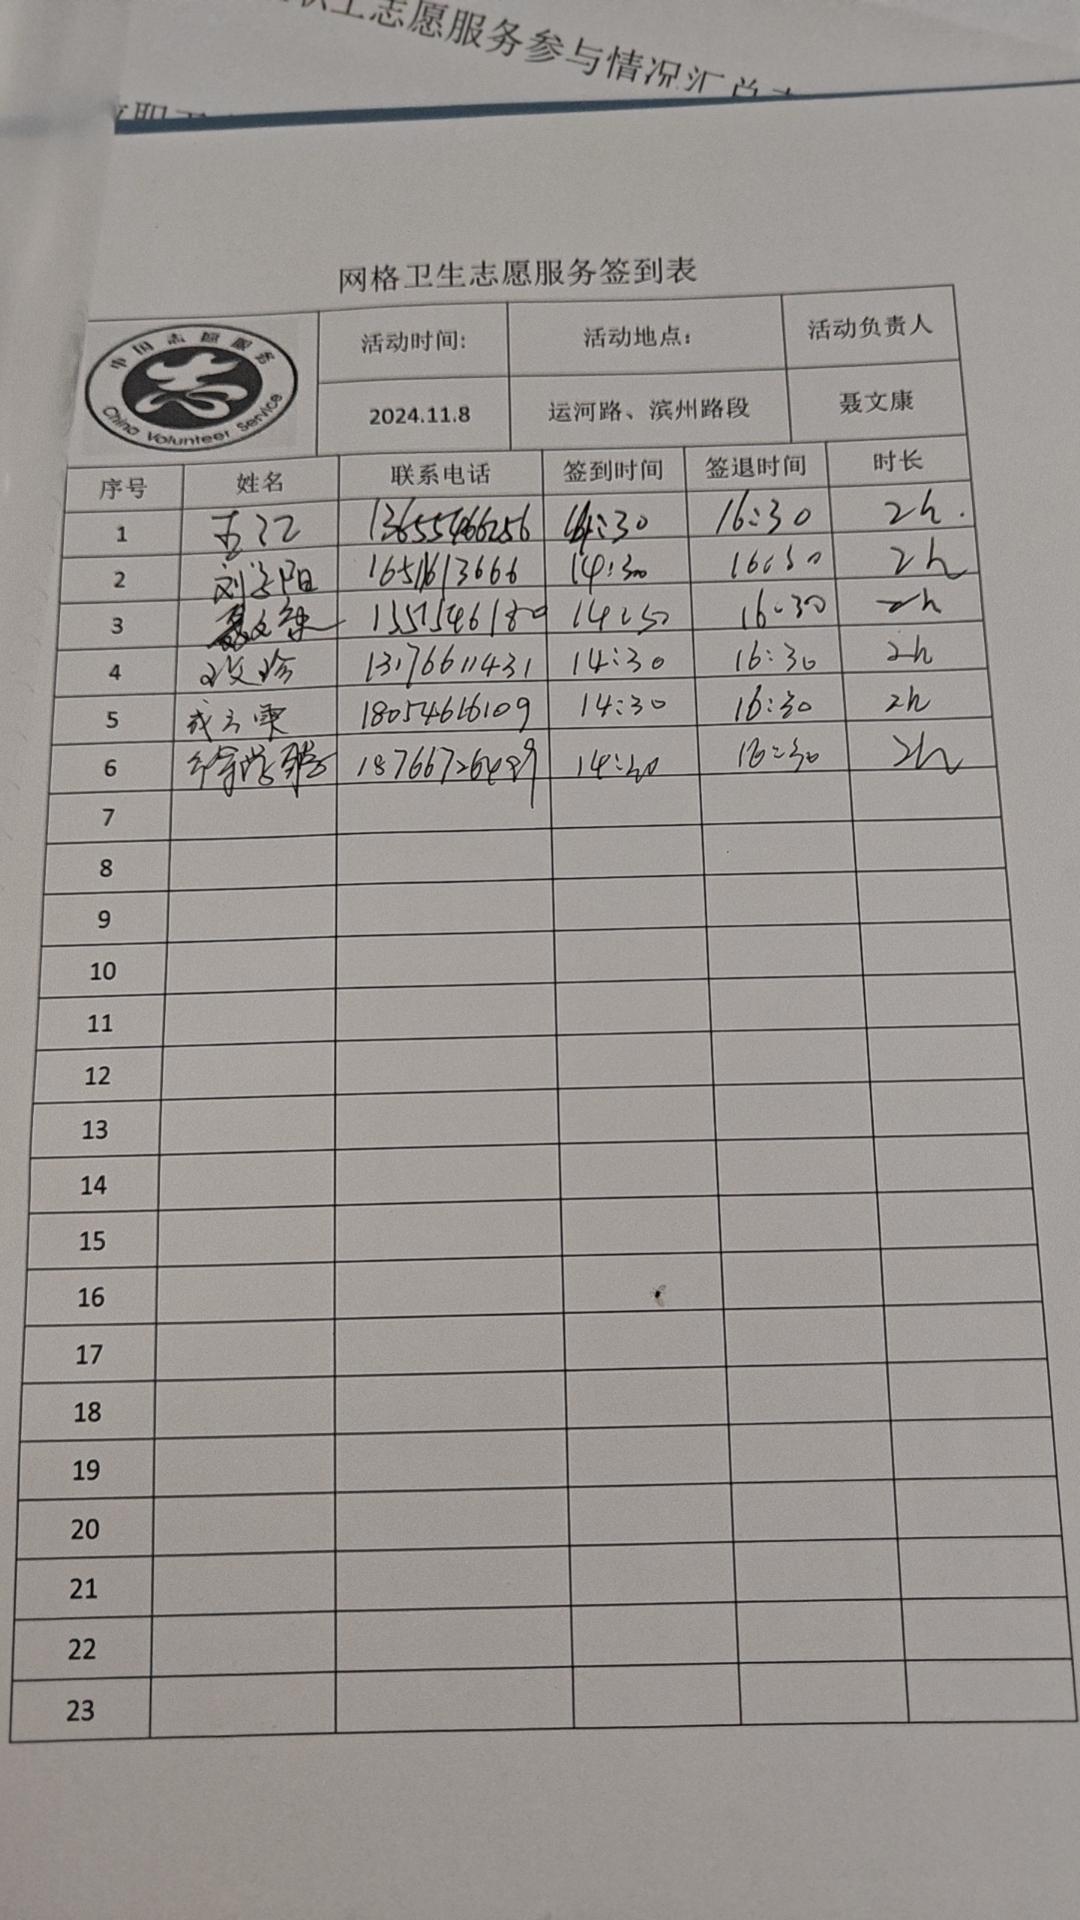 志愿服务参与情况汇总
网格卫生志愿服务签到表
中国志愿服务
China Volunteer Service
活动时间: 活动地点: 活动负责人
2024.11.8 运河路、滨州路段 聂文康
序号 姓名 联系电话 签到时间 签退时间 时长
1 13655466256 14:30 16:30 2h.
2 刘学阳 14:30 16:30 2h
3 14:30 16:30 2h
4 13176611431 14:30 16:30 2h
5 18054616109 14:30 16:30 2h
6 14:30 16:30 2h
7
8
9
10
11
12
13
14
15
16
17
18
19
20
21
22
23